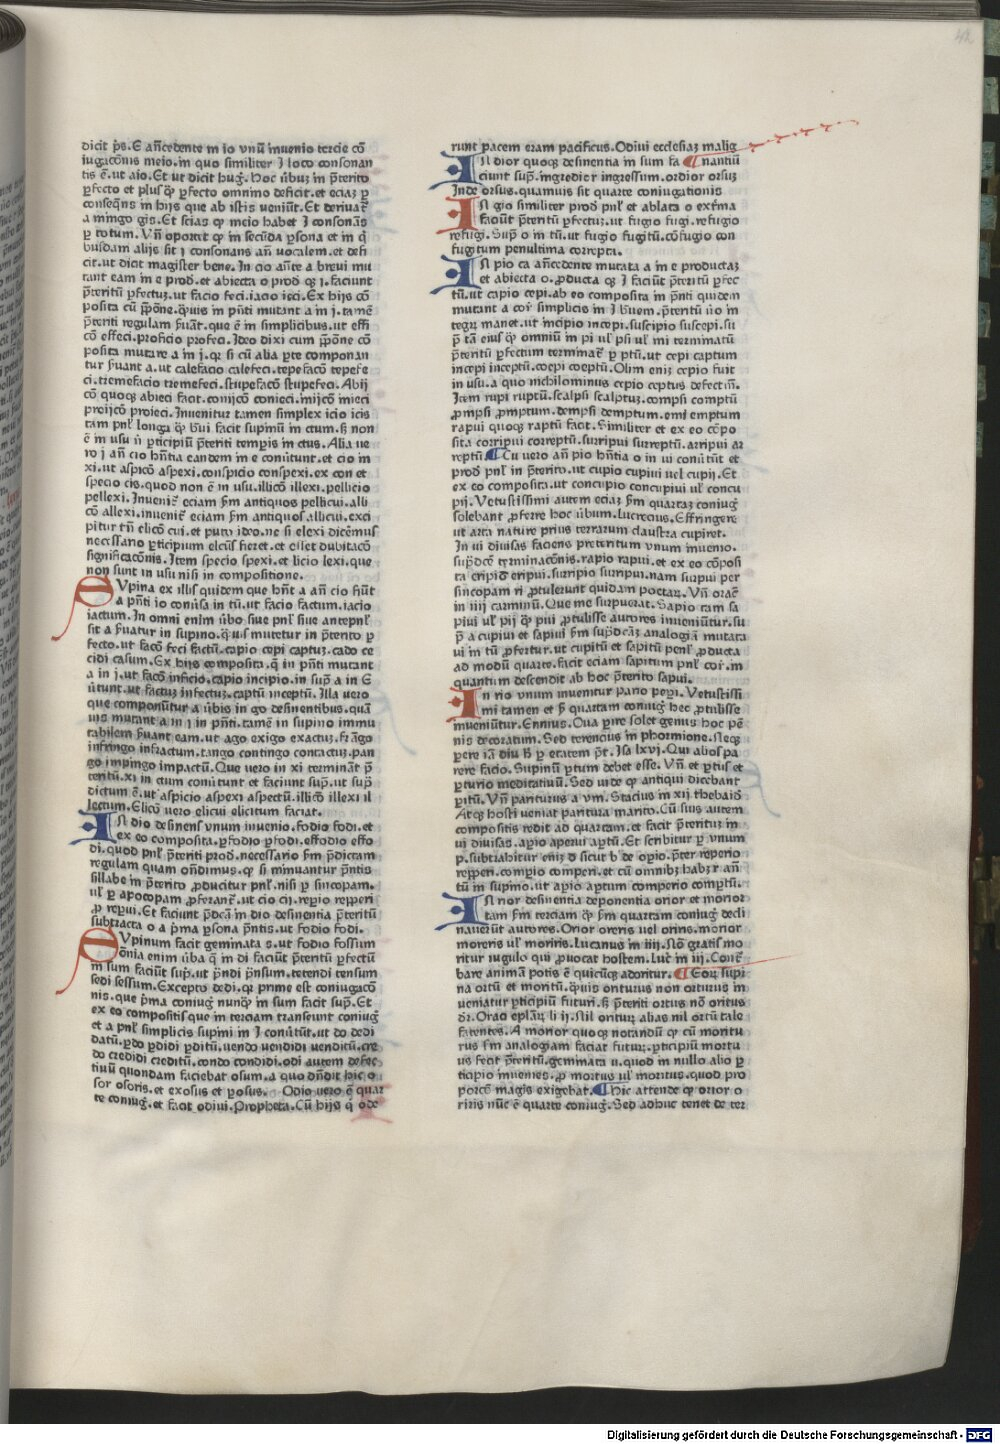 42
dicit p̄s. E an̄cedente in io vnū inuenio tercie cō
iugacōnis meio. in quo similiter J loco consonan
tis ē. ut aio. Et ut dicit hug. Hoc ūbuꝫ in p̄terito
ꝑfecto et plusꝙ ꝑfecto omnimo deficit. et eciaꝫ ꝑ
conseq̄ns in hijs que ab istis veniūt. Et deriuat᷑
a mingo gis. Et scias ꝙ meio habet J consonās
ꝑ totum. Vn̄ oportet ꝙ in secūda ꝑsona et in q̄
busdam alijs sit j consonans an̄ uocalem. et defi
cit. ut dicit magister bene. In cio an̄te a breui mu
tant eam in e prod. et abiecta o prod qꝫ j. faciunt
p̄teritū ꝑfectuꝫ. ut facio feci. iacio ieci. Ex hijs cō
posita cū p̄pōne. q̄uis in pn̄ti mutant a in j. tamē
p̄teriti regulam ẜuāt. que ē in simplicibus. ut effi
cō effeci. proficio profeci. Ideo dixi cum p̄pōne cō
posita mutare a in j. qꝫ si cū alia ꝑte componan
tur ẜuant a. ut calefacio calefeci. tepefacō tepefe
ci. tremefacio tremefeci. stupefacō stupefeci. Abij
cō quoqꝫ abieci facit. conijcō conieci. inijcō inieci
proijcō proieci. Inuenitur tamen simplex icio icis
tam pnl̄ longa ꝙ bͥui facit supinū in ctum. sꝫ non
ē in usu nͥ ꝑticipiū p̄teriti tempis in ctus. Alia ue
ro j an̄ cio hn̄tia eandem in e conūtunt. et cio in
xi. ut aspicō aspexi. conspicio conspexi. ex con et
specio cis. quod non ē in usu. illicō illexi. pellicio
pellexi. Inuenit᷑ eciam ẜm antiquos pellicui. alli
cō allexi. inuenit᷑ eciam ẜm antiquos allicui. exci
pitur tn̄ elicō cui. et puto ideo. ne si elexi dicēmus
necessario ꝑticipium elcūs fieret. et esset dubitacō
significacōnis. Item specio spexi. et licio lexi. que
non sunt in usu nisi in compositione.
SVpina ex illis quidem que hn̄t a an̄ cio fiūt
a pn̄ti io conūsa in tū. ut facio factum. iacio
iactum. In omni enim ūbo siue pnl̄ siue antepnl̄
sit a ẜuatur in supino. q̄uis mutetur in p̄terito ꝑ
fecto. ut facō feci factū. capio cepi captuꝫ. cado ce
cidi casum. Ex hijs composita. q̄ in pn̄ti mutant
a in j. ut facō inficio. capio incipio. in sup̄ a in E
ūtunt. ut factus infectus. captū inceptū. Illa uero
que componūtur a ūbis in go desinentibus. quā
uis mutant a in j in pn̄ti. tamē in supino immu
tabilem ẜuant eam. ut ago exigo exactus. frāgo
infringo infractum. tango contingo contactus. pan
go impingo impactū. Que uero in xi terminant p̄
teritū. xi in ctum conūtunt et faciunt sup̄. ut sup̄
dictum ē. ut aspicio aspexi aspectū. illicō illexi il
lectum. Elicō uero elicui elicitum faciat.
IN dio desinens vnum inuenio. fodio fodi. et
ex eo composita. ꝑfodio ꝑfodi. effodio effo
di. quod pnl̄ p̄teriti prod. necessario ẜm p̄dictam
regulam quam on̄dimus. ꝙ si minuantur pn̄tis
sillabe in p̄terito ꝓducitur pnl̄. nisi ꝑ sincopam.
ul̓ ꝑ apocopam ꝓferant᷑. ut cio cij. reꝑio reꝑperi
ꝓ repui. Et faciunt p̄dcā in dio desinentia p̄teritū
subtracta o a pͥma ꝑsona pn̄tis. ut fodio fodi.
SVpinum facit geminata s. ut fodio fossum
Omnia enim ūba q̄ in di faciūt p̄teritū ꝑfectū
in sum faciūt sup̄. ut pn̄di pn̄sum. tetendi tensum
sedi sessum. Excepto dedi. ꝙ prime est coniugacō
nis. que pͥma coniug nunꝙ in sum facit sup̄. Et
ex eo compositis que in terciam transeunt coniug
et a pnl̄ simplicis supini in J conūtūt. ut do dedi
datū. ꝑdo ꝑdidi ꝑditū. uendo uendidi uenditū. cre
do credidi creditū. condo condidi. odi autem defec
tiuū quondam faciebat osum. a quo dn̄dit hic o
sor osoris. et exosus et ꝑosus. Odio uero ē quar
te coniug. et facit odiui. Propheta. Cū hijs q̄ ode
runt pacem eram pacificus. Odiui ecclesiaꝫ malig
IN dior quoqꝫ desinentia in sum fa ¶ nantiū
ciunt sup̄. ingredior ingressum. ordior orsuꝫ
Inde orsus. quamuis sit quarte coniugationis
IN gio similiter prod pnl̄ et ablata o extͥma
faciūt p̄teritū ꝑfectuꝫ. ut fugio fugi. refugio
refugi. Sup̄ o in tū. ut fugio fugitū. cōfugio con
fugitum penultima correpta.
IN pio ca an̄cedente mutata a in e productaꝫ
et abiecta o. ꝓducta qꝫ J faciūt p̄teritū ꝑfec
tū. ut capio cepi. ab eo composita in pn̄ti quidem
mutant a cor̓ simplicis in J bͥuem. p̄teritū u̓o in
tegrꝫ manet. ut incipio incepi. suscipio suscepi. su
p̄ tā eius ꝙ omniū in pi ul̓ psi ul̓ mi terminatū
p̄teritū ꝑfectum terminat᷑ ꝑ ptū. ut cepi captum
incepi inceptū. coepi coeptū. Olim eniꝫ cepio fuit
in usu. a quo nichilominus cepio ceptus defectiū.
Item rupi ruptū. scalpsi scalptuꝫ. compsi comptū
ꝓmpsi ꝓmptum. dempsi demptum. emi emptum
rapui quoqꝫ raptū facit. Similiter et ex eo cōpo
sita corripui correptū. surripui surreptū. arripui ar
reptū ¶ Cū uero an̄ pio hn̄tia o in ui conūtūt et
prod pnl̄ in p̄terito. ut cupio cupiui uel cupij. Et
ex eo composita. ut concupio concupiui ul̓ concu
pij. Vetustissimi autem eciaꝫ ẜm quartaꝫ coniug
solebant ꝓferre hoc ūbum. Lucrecius. Effringere
ut arta nature prius terrarum claustra cupiret.
In ui diuisas faciens preteritum vnum inuenio.
sup̄dcē terminacōnis. rapio rapui. et ex eo cōposi
ta eripiō eripui. surripio surripui. nam surpui per
sincopam rͥ ꝓtulerunt quidam poetaꝝ. Vn̄ oraē
in iiij carminū. Que me surpuerat. Sapio tam sa
piui ul̓ pij ꝙ piui ꝓtulisse autores inueniūtur. su
p̄ a cupiui et sapiui ẜm sup̄dcāꝫ analogiā mutata
ui in tū ꝓfertur. ut cupitū et sapitū penl̓ ꝓducta
ad modū quarte. facit eciam sapitum pnl̄ cor̓. in
quantum descendit ab hoc p̄terito sapui.
IN rio vnum inuenitur pario peperi. Vetustissi
mi tamen et ẜm quartam coniug hec ꝓtulisse
inueniūtur. Ennius. Oua parire solet genus hoc pē
nis decoratum. Sed terencius in phormione. Neqꝫ
ꝑere iā diu hͦ ꝑ etatem pt̄. Jsa lxvj. Qui alios pa
rere facio. Supinū ꝑtum debet esse. Vn̄ et ꝑtus et
ꝑturio meditatiuū. Sed uidetꝫ ꝙ antiqui dicebant
ꝑitū. Vn̄ pariturus a vm. Stacius in xij thebaid.
Atqꝫ hosti veniat paritura marito. Cū suis autem
compositis redit ad quartam. et facit p̄terituꝫ in
ui diuisas. aꝑio aperui aꝑtū. Et scribitur ꝑ vnum
p. subtrahitur eniꝫ d sicut b de oꝑio. p̄ter reperio
reꝑperi. comꝑio comperi. et cū omnibꝫ habꝫ r an̄
tū in supino. ut aꝑio aꝑtum comperio comꝑtū.
IN rior desinentia deponentia orior et morior
tam ẜm terciam ꝙ ẜm quartam coniug decli
nauerūt autores. Orior oreris uel oriris. morior
moreris ul̓ moriris. Lucanus in iiij. Nō gratis mo
ritur iugulo qui ꝓuocat hostem. Luc̄ in iij. Cont̄
bare animā potis ē quicūqꝫ adoritur. ¶ Eoꝝ supi
na ortū et moritū. q̄uis oriturus non orturus in
ueniatur ꝑticipiū futuri. sꝫ p̄teriti ortus nō oritus
dr̄. Oraō eplaꝝ li ij. Nil orituꝝ alias nil ortū tale
fatentes. A morior quoqꝫ notandū ꝙ cū moritu
rus ẜm analogiam faciat futuꝝ. ꝑticipiū mortu
us fecit p̄teritū. geminata u. quod in nullo alio ꝑ
ticipio inuenies. ꝓ mortus ul̓ moritus. quod pro
porcō magis exigebat. ¶ Hic attende ꝙ orior o
riris nūc ē quarte coniug. Sed adhuc tenet de ter
Digitalisierung gefördert durch die Deutsche Forschungsgemeinschaft - DFG